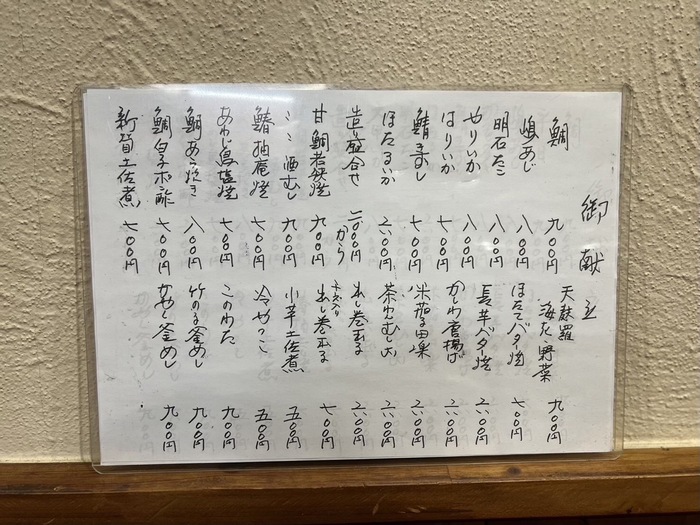 御献立
鯛 九〇〇円
嶋あじ 八〇〇円
明石だこ 八〇〇円
やりいか 八〇〇円
はりいか 七〇〇円
鯖きずし 七〇〇円
ほたるいか 六〇〇円
造り盛合せ 二〇〇〇円から
甘鯛若狭焼 九〇〇円
〃 酒むし 九〇〇円
鰆柚庵焼 七〇〇円
あわじ鳥塩焼 七〇〇円
鯛あら炊き 八〇〇円
鯛白子ポン酢 七〇〇円
新筍土佐煮 七〇〇円
天麩羅
海老・野菜 九〇〇円
ほたてバター焼 七〇〇円
長芋バター焼 六〇〇円
かしわ唐揚げ 六〇〇円
米茄子田楽 六〇〇円
茶わんむし 六〇〇円
出し巻玉子 六〇〇円
出し巻玉子 七〇〇円
小芋土佐煮 五〇〇円
冷やっこ 五〇〇円
このわた 九〇〇円
竹の子釜めし 九〇〇円
かやく釜めし 九〇〇円